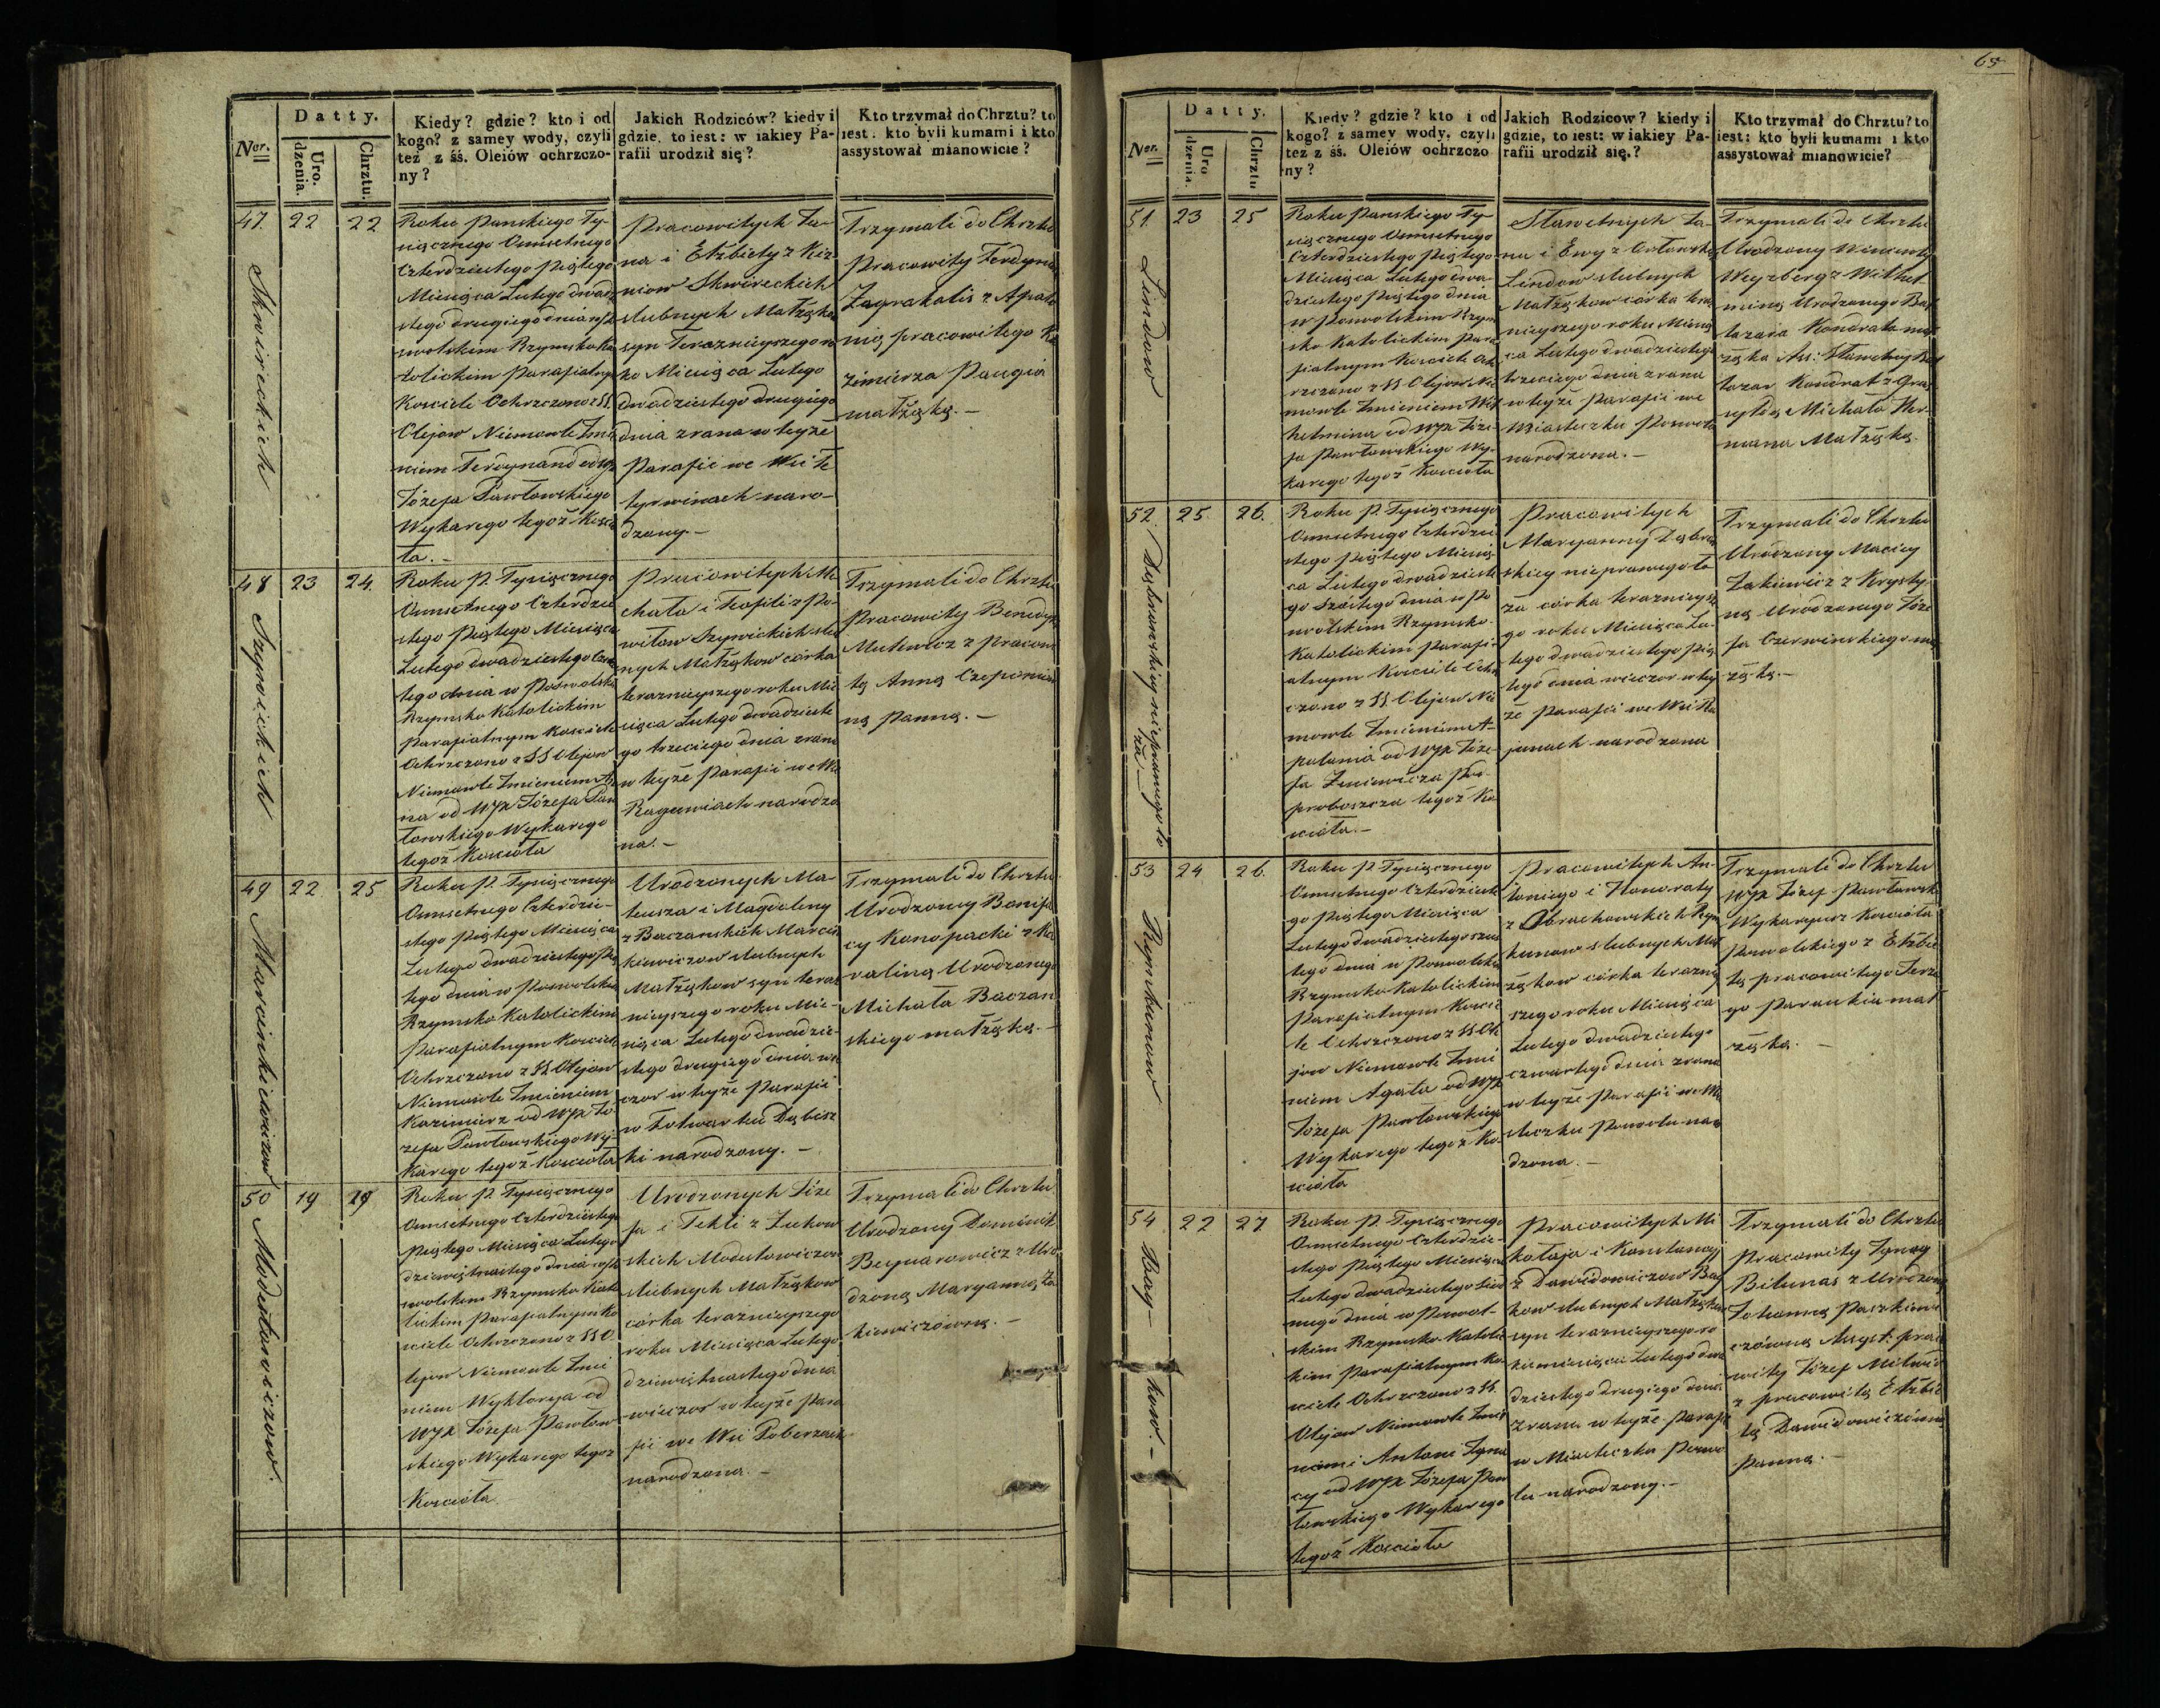 65
Datty.
Ner.
Uro.
dzenia.
Chrztu.
Kiedy? gdzie? kto i od
kogo? z samey wody, czyli
też z śś. Oleiów ochrzczo-
ny?
Jakich Rodziców? kiedy i
gdzie, to iest: w iakiey Pa-
rafii urodził się?
Kto trzymał do Chrztu? to
iest: kto byli kumami i kto
assystował mianowicie?
47.
22
22
Skwireckich
Roku Panskiego Ty-
siącznego Osmsetnego
Czterdziestego Piątego
Miesiąca Lutego dwadzie
stego drugiego dnia w Po
swolskim Rzymsko Ka
tolickim Parafialnym
Kosciele Ochrzczono z SS.
Olejow Niemowle Imie
niem Ferdynand od WJX
Józefa Pawłowskiego
Wykarego tegoż Koscio
ła. -
Pracowitych Ja-
na i Elżbiety z Kie
niow Skwireckich
slubnych Małżąkow
syn Teraznieyszego ro
ku Miesiąca Lutego
dwadziestego drugiego
dnia zrana w teyże
Parafii we Wsi
naro-
dzony. -
Trzymali do Chrztu
Pracowity Ferdynand
Zagrakalis z Apolo
nią pracowitego Ka
zimierza Paugia
małżąką. -
48
23
24.
Szywickich
Roku P. Tysiącznego
Osmsetnego Czterdzie
stego Piątego Miesiąca
Lutego dwadziestego Czwar
tego dnia w Poswolskim
Rzymsko Katolickim
Parafialnym Kosciele
Ochrzczono z SS Olejow
Niemowle Imieniem An
na od WJX Józefa Paw
łowskiego Wykarego
tegoż Kosciola
Pracowitych Mi
chała i Teofili z Po-
wiłow Szywickich slub
nych Małżąkow córka
teraznieyszego roku Mie
siąca Lutego dwadzieste
go trzeciego dnia zrana
w teyże Parafii we Wsi
Raguwiach narodzo
na. -
Trzymali do Chrztu
Pracowity Benedykt
Mulewicz z Pracowi
tą Anną Czeponiow
ną Panną. -
49
22
25
Marcinkiewiczow
Roku P. Tysiącznego
Osmsetnego Czterdzie-
stego Piątego Miesiąca
Lutego dwadziestego Pią
tego dnia w Poswolskim
Rzymsko Katolickim
Parafialnym Kosciele
Ochrzczono z SS Olejow
Niemowle Imieniem
Kazimierz od WJX Jó
zefa Pawłowskiego Wy-
karego tegoż Kosciola
Urodzonych Ma-
teusza i Magdaleny
z Baczanskich Marcin
kiewiczow slubnych
Małżąkow syn teraz
nieyszego roku Mie-
siąca Lutego dwadzie-
stego drugiego dnia wie
czor w teyże Parafii
w Folwarku Dąbisz
ki narodzony. -
Trzymali do Chrztu
Urodzony Bonifa
cy Konopacki z Ka
roliną Urodzonego
Michała Baczan
skiego małżąką. -
50
19
19
Modestowiczow.
Roku P. Tysiącznego
Osmsetnego Czterdziestego
Piątego Miesiąca Lutego
dziewiętnastego dnia w Po
swolskim Rzymsko Kato
lickim Parafialnym Ko
sciele Ochrzczono z SS O
lejow Niemowle Imie
niem Wyktorya od
WJX Józefa Pawłow
skiego Wykarego tegoz
Kosciola
Urodzonych Józe
fa i Tekli z Żukow
skich Modestowiczow
slubnych Małżąkow
córka teraznieyszego
roku Miesiąca Lutego
dziewiętnastego dnia
wieczor w teyże Para
fii we Wsi Poberzach
narodzona. -
Trzymali do Chrztu
Urodzony Dominik
Beynarowicz z Uro
dzoną Maryanną Ża
kiewiczówną. -
Datty.
Ner.
Uro
dzenia.
Chrztu
Kiedy? gdzie? kto i od
kogo? z samey wody, czyli
tez z śś. Oleiów ochrzczo
ny?
Jakich Rodzicow? kiedy i
gdzie, to iest: w iakiey Pa-
rafii urodził się.?
Kto trzymał do Chrztu? to
iest: kto byli kumami i kto
assystował mianowicie?
51.
23
25
Lindow
Roku Panskiego Ty-
siącznego Osmsetnego
Czterdziestego Piątego
Miesiąca Lutego dwa-
dziestego Piątego dnia
w Poswolskim Rzym
sko Katolickim Para
fialnym Kosciele Och
rzczono z SS Olejow Nie
mowle Imieniem Wil
helmina od WJX Józe-
fa Pawłowskiego Wy-
karego tegoż Kosciola
Sławetnych Ja-
na i Ewy z Orłowskich
Lindow slubnych
Małżąkow córka teraz
nieyszego roku Miesią
ca Lutego dwadziestego
trzeciego dnia zrana
w teyże Parafii we
Miasteczku Poswolu
narodzona. -
Trzymali do Chrztu
Urodzony Wincenty
Weyzberg z Wilhel
miną Urodzonego Bal
tazara Kondrata mał
żąką As: Sławetny Bal
tazar Kondrat z
Michała Her
mana Małżąką.
52.
25.
26.
Dąbrowskiey nieprawego ło
ża. -
Roku P. Tysiącznego
Osmsetnego Czterdzie
stego Piątego Miesią
ca Lutego dwadzieste
go szóstego dnia w Po
swolskim Rzymsko-
Katolickim Parafi-
alnym Kosciele Ochrz
czono z SS. Olejow Nie
mowle Imieniem A-
polonia od WJX Józe-
fa
proboszcza tegoż Ko
sciola. -
Pracowitych
Maryanny Dąbrow
skiey nieprawego ło
ża córka teraznieysze
go roku Miesiąca Lu-
tego dwadziestego pią
tego dnia wieczor w tey
że Parafii we Wsi Ra
junach narodzona
Trzymali do Chrztu
Urodzony Maciey
Żakiewicz z Krysty
ną Urodzonego Józe
fa Czerwinskiego mał
żąką. -
53
24
26.
Rynkunow
Roku P. Tysiącznego
Osmsetnego Czterdzieste
go Piątego Miesiąca
Lutego dwadziestego szós
tego dnia w Poswolskim
Rzymsko Katolickim
Parafialnym Koscie
le Ochrzczono z SS. Ole
jow Niemowle Imie
niem Agata od WJX
Józefa Pawłowskiego
Wykarego tegoż Ko-
sciola
Pracowitych An-
toniego i Honoraty
z Obrachowskich Ryn
kunow slubnych Mał
żąkow córka terazniey
szego roku Miesiąca
Lutego dwadziestego
czwartego dnia zrana
w teyże Parafii we Mia
steczku Poswolu naro
dzona. -
Trzymali do Chrztu
WJX Józef Pawłowski
Wykaryusz Kosciola
Poswolskiego z Elżbie
tą pracowitego Jerze
go Paraukia mał
żąką. -
54
22
27
Bag-
kow. -
Roku P. Tysiącznego
Osmsetnego Czterdzie-
stego Piątego Miesiąca
Lutego dwadziestego siod
mego dnia w Poswol-
skim Rzymsko Katolic
kim Parafialnym Ko-
sciele Ochrzczono z SS.
Olejow Niemowle Imie
niem Antoni Igna
cy od WJX Józefa Paw
łowskiego Wykarego
tegoż Kosciola
Pracowitych Mi
kołaja i Konstancyi
z Dawidowiczow Bag
kow slubnych Małżąkow
syn teraznieyszego ro
ku miesiąca Lutego dwa
dziestego drugiego dnia
zrana w teyże Parafii
w Miasteczku Poswo
lu narodzony. -
Trzymali do Chrztu
Pracowity Ignacy
Bitunas z Urodzoną
Johanną Paszkiewi
czówną Assyst: praco
wity Józef
z pracowitą Elżbie
tą Dawidowiczówną
Panną. -